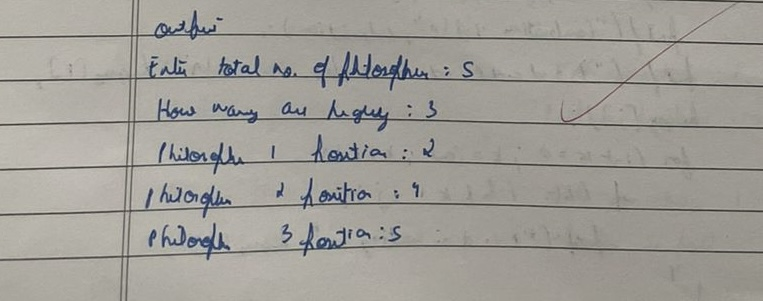 output
Enter total no. of philosopher : 5
How many are hungry : 3
Philosopher 1 position : 2
philosopher 2 position : 4
philosopher 3 position : 5